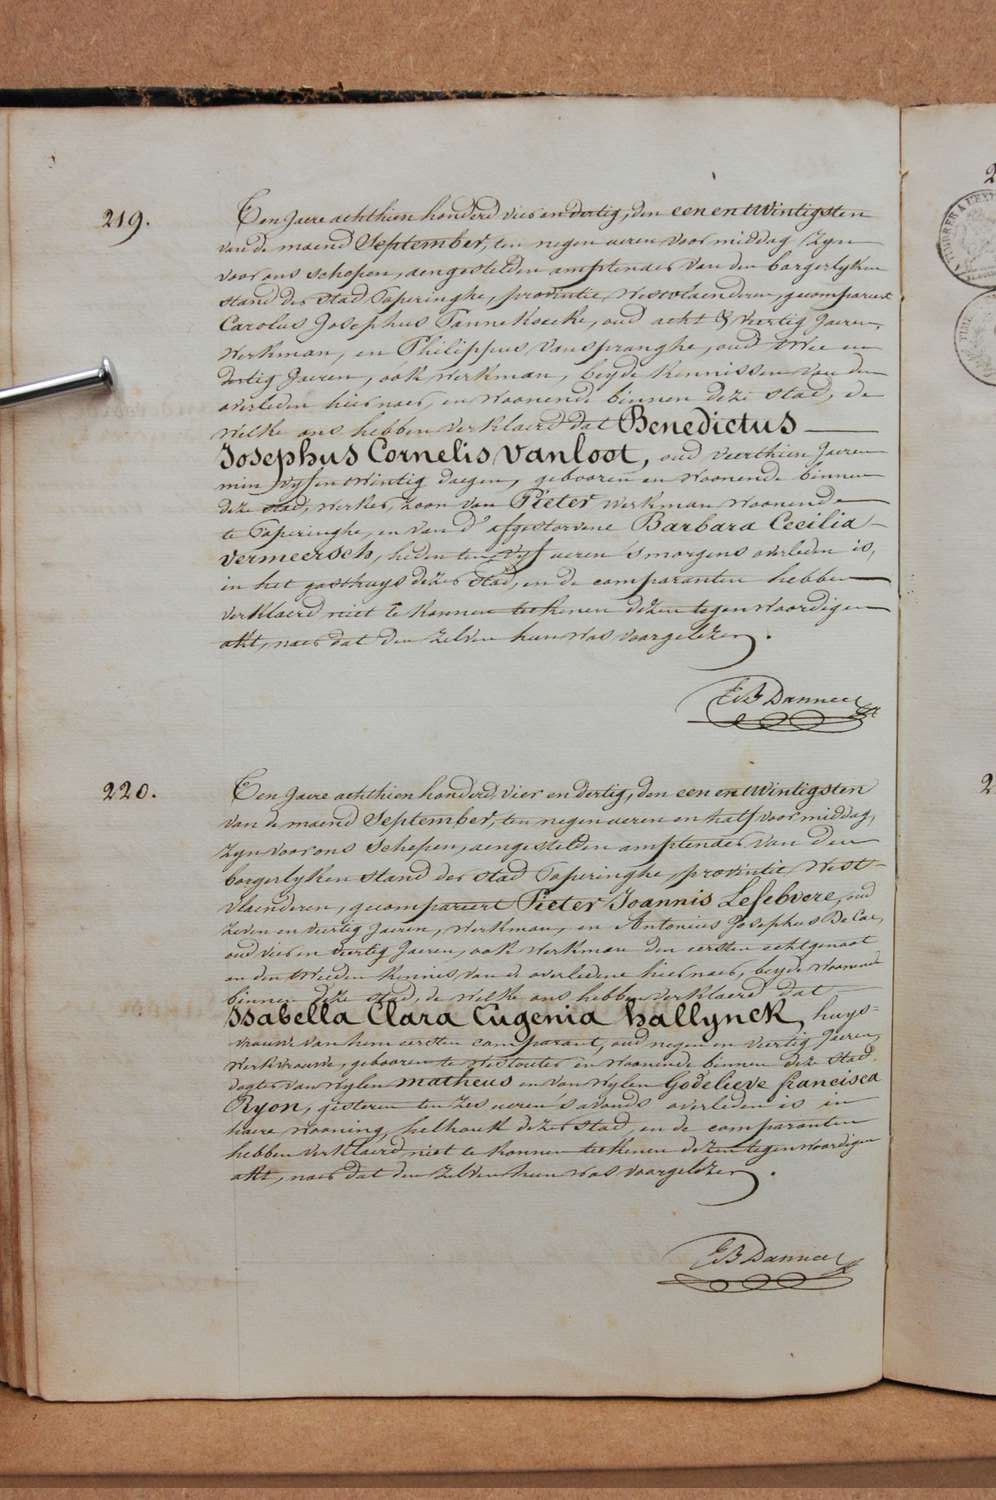 219.
Ten Jaere achthien honderd vier en dertig, den een en twintigsten
van de maend September, ten negen ueren voor middag, Zyn
voor ons schepen, aengestelden amptenaer van den borgerlyken
stand der stad Poperinghe, provintie Westvlaenderen, gecompareert
Carolus Josephus Pannekoeke, oud acht & veertig Jaeren,
Werkman, en Philippus Vanspranghe, oud twee en
dertig Jaeren, ook werkman, beyde kennissen van den
overleden hier naer, en woonende binnen deze stad, de
welke ons hebben verklaerd dat Benedictus
Josephus Cornelis Vanloot, oud veerthien Jaeren
min vyf en twintig daegen, gebooren en woonende binnen
deze stad, werker, zoon van Pieter werkman woonende
te Poperinghe, en van d'afgestorvene Barbara Cecilia
Vermeersch, heden ten vyf ueren 's morgens overleden is,
in het gasthuys dezer stad, en de comparanten hebben
verklaerd niet te konnen teekenen dezen tegenwoordigen
akt, naer dat den zelven hun was voorgelezen.
Danneel
220.
Ten Jaere achthien honderd vier en dertig, den een en twintigsten
van de maend September, ten negen ueren en half voor middag,
Zyn voor ons schepen, aengestelden amptenaer van den
borgerlyken stand der stad Poperinghe, provintie West-
vlaenderen, gecompareert Pieter Joannis Lefebvere, oud
zeven en veertig Jaeren, werkman, en Antonius Josephus De Cae,
oud vier en veertig Jaeren, ook werkman den eersten echtgenoot
en den tweeden kennis, van de overledene hier naer, beyde woonende
binnen deze stad, de welke ons hebben verklaerd dat
Isabella Clara Eugenia Hallynck, huys-
vrouwe van hem eersten comparant, oud negen en veertig Jaeren,
werkvrouwe, gebooren te Westouter en woonende binnen deze stad.
dogter van wylen Matheus en van wylen Godelieve francisca
Ryon, gisteren ten zes ueren 's avonds overleden is in
haere wooning, helhoek dezer stad, en de comparanten
hebben verklaerd niet te konnen teekenen dezen tegenwoordigen
akt, naer dat den zelven hun was voorgelezen.
Danneel